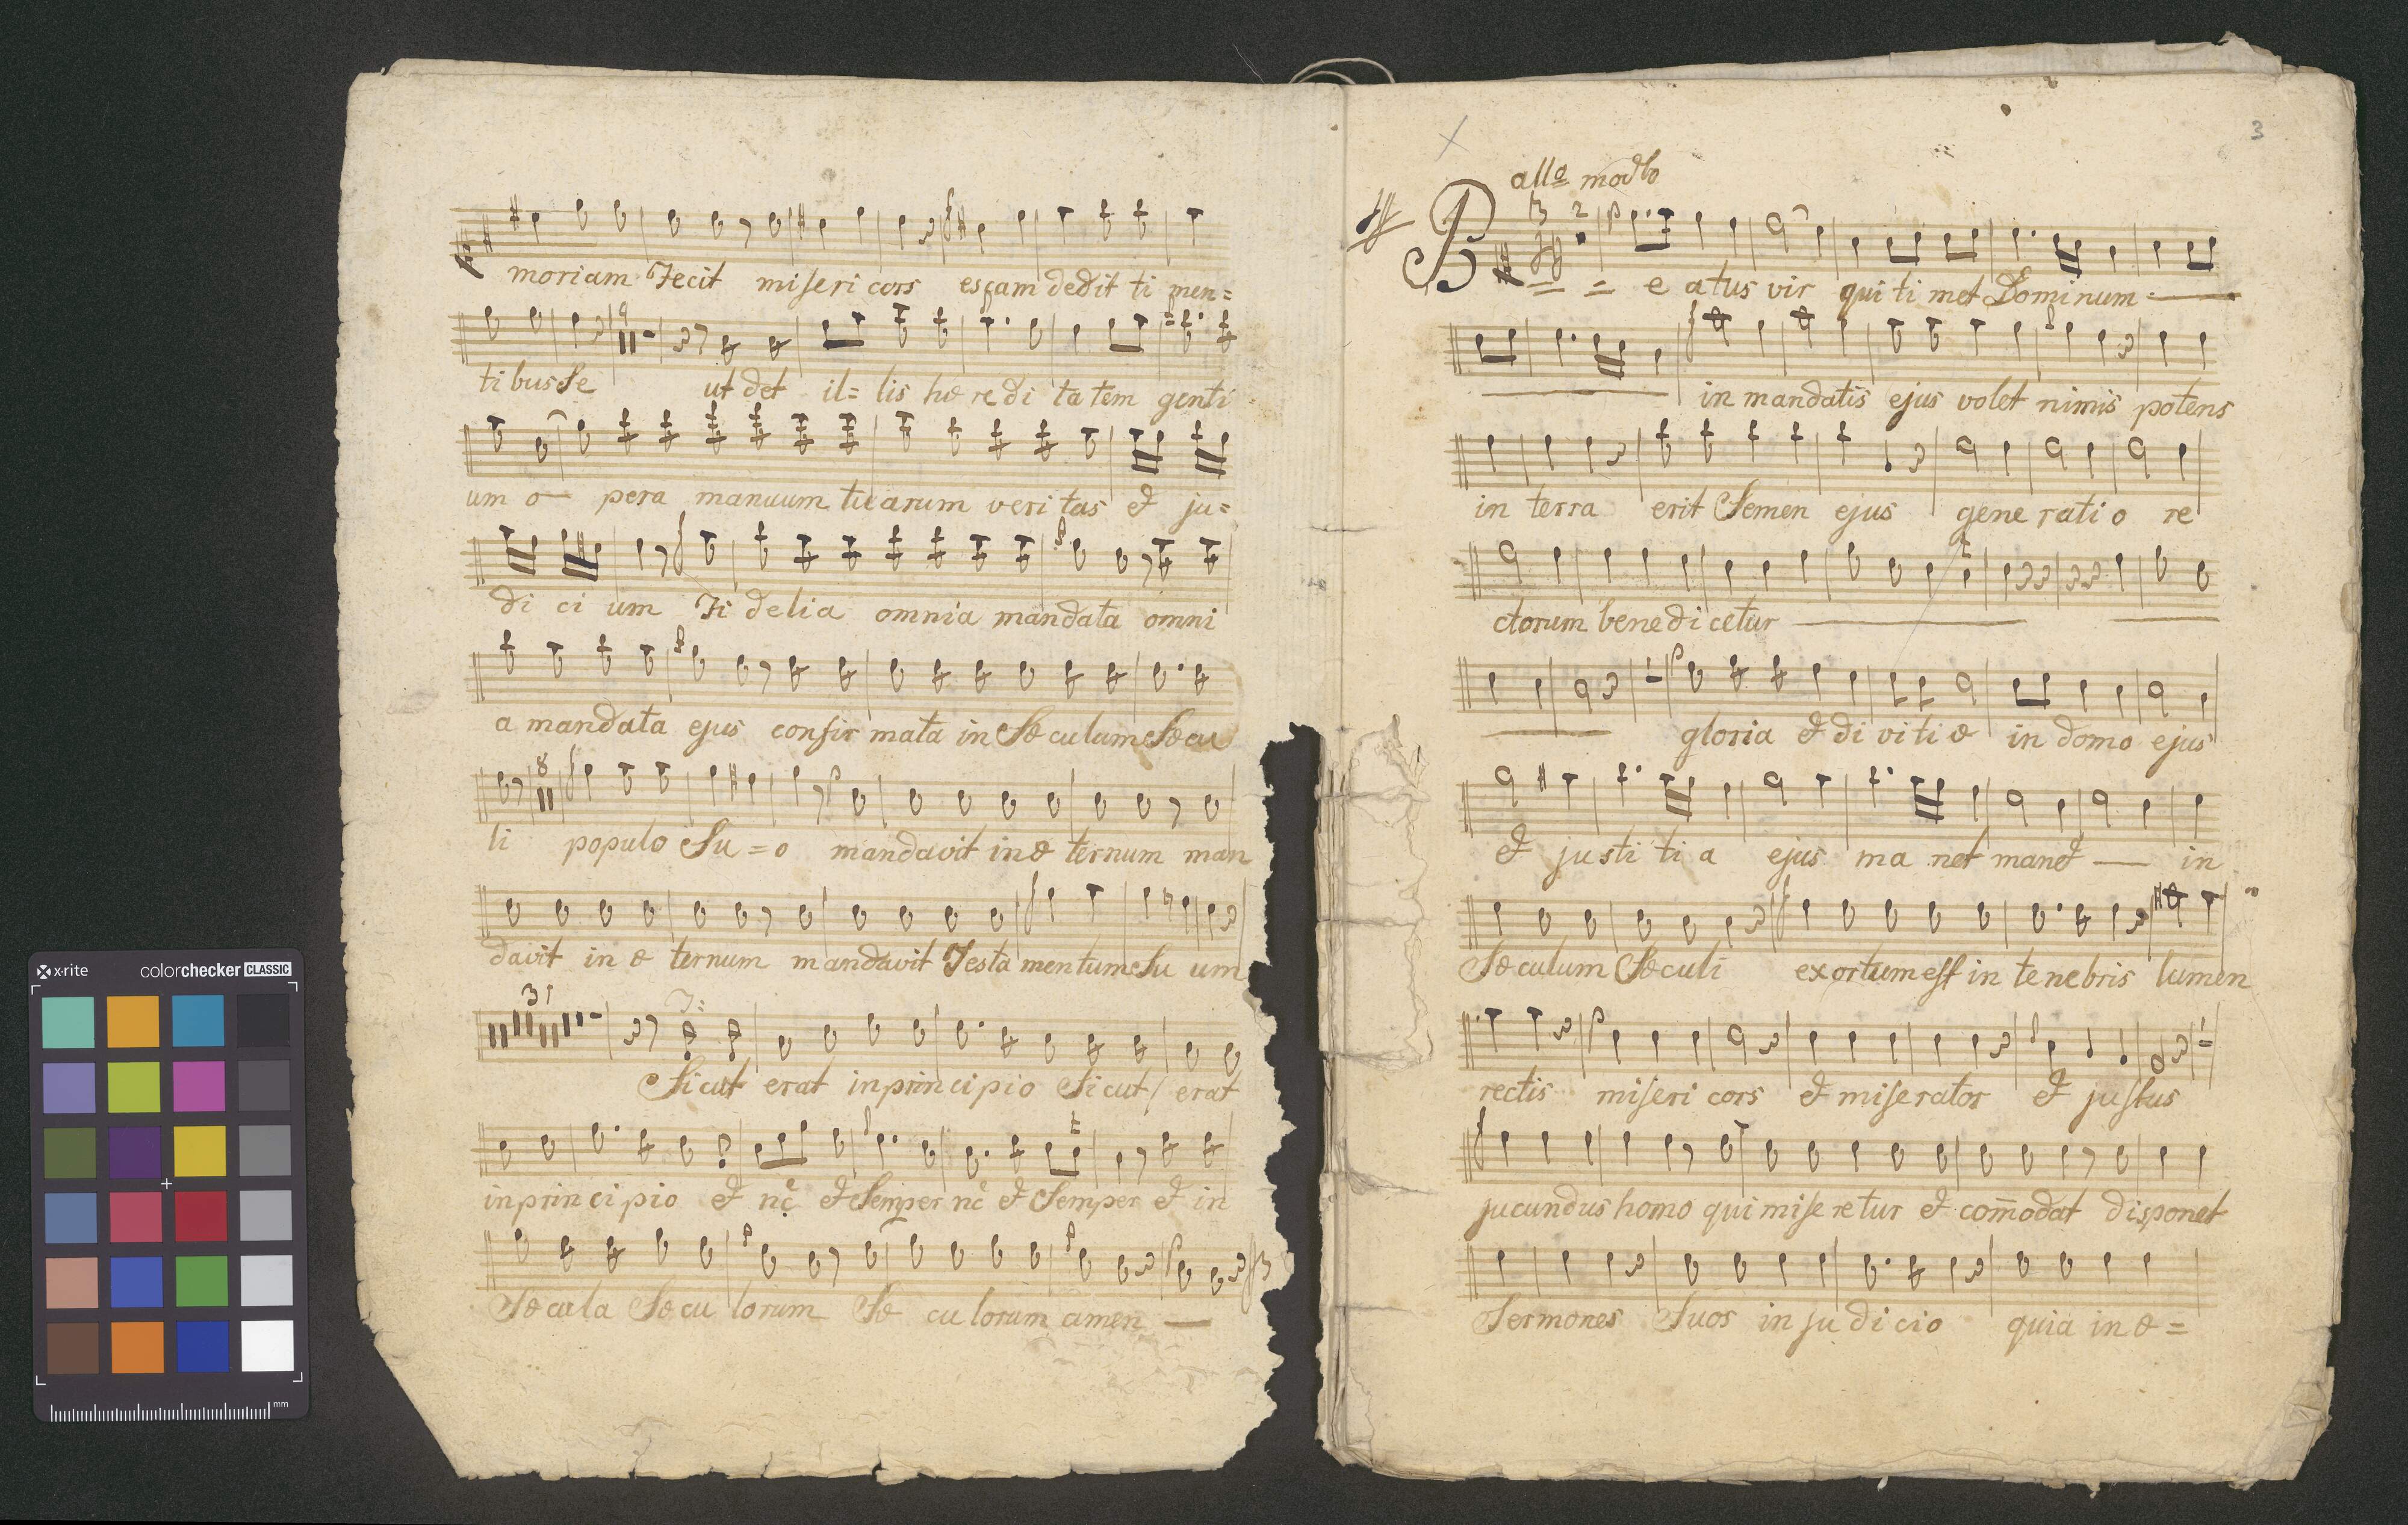 moriam Fecit miseri cors escam dedit ti men=
9
ti bus se ut det il= lis hæ re di ta tem genti
um o— pera manuum tuarum veri tas et ju=
di ci um Fi delia omnia mandata omni
a mandata ejus confir mata in Sæ culum Sæ cu
8
li populo Su = o mandavit in æ ternum man
davit in æ ternum mandavit Testa mentum Su um
31
T:
Sicut erat in principio Sicut / erat
in prin ci pio et nc̃ et Semper nc̃ et Semper et in
Sæ cula Sæ cu lorum Sæ cu lorum amen —
x-rite colorchecker CLASSIC
mm
3
allo modto
3 2
B e atus vir qui ti met Dominum —
— in mandatis ejus volet nimis potens
in terra erit Semen ejus gene rati o re
ctorum bene di cetur — —
— gloria et di vi ti æ in domo ejus
et justi ti a ejus ma net manet — in
Sæ culum Sæ culi exortum est in te ne bris lumen
rectis miseri cors et mise rator et justus
jucundus homo qui mise re tur et com̄odat disponet
Sermones Suos in ju di cio quia in æ =